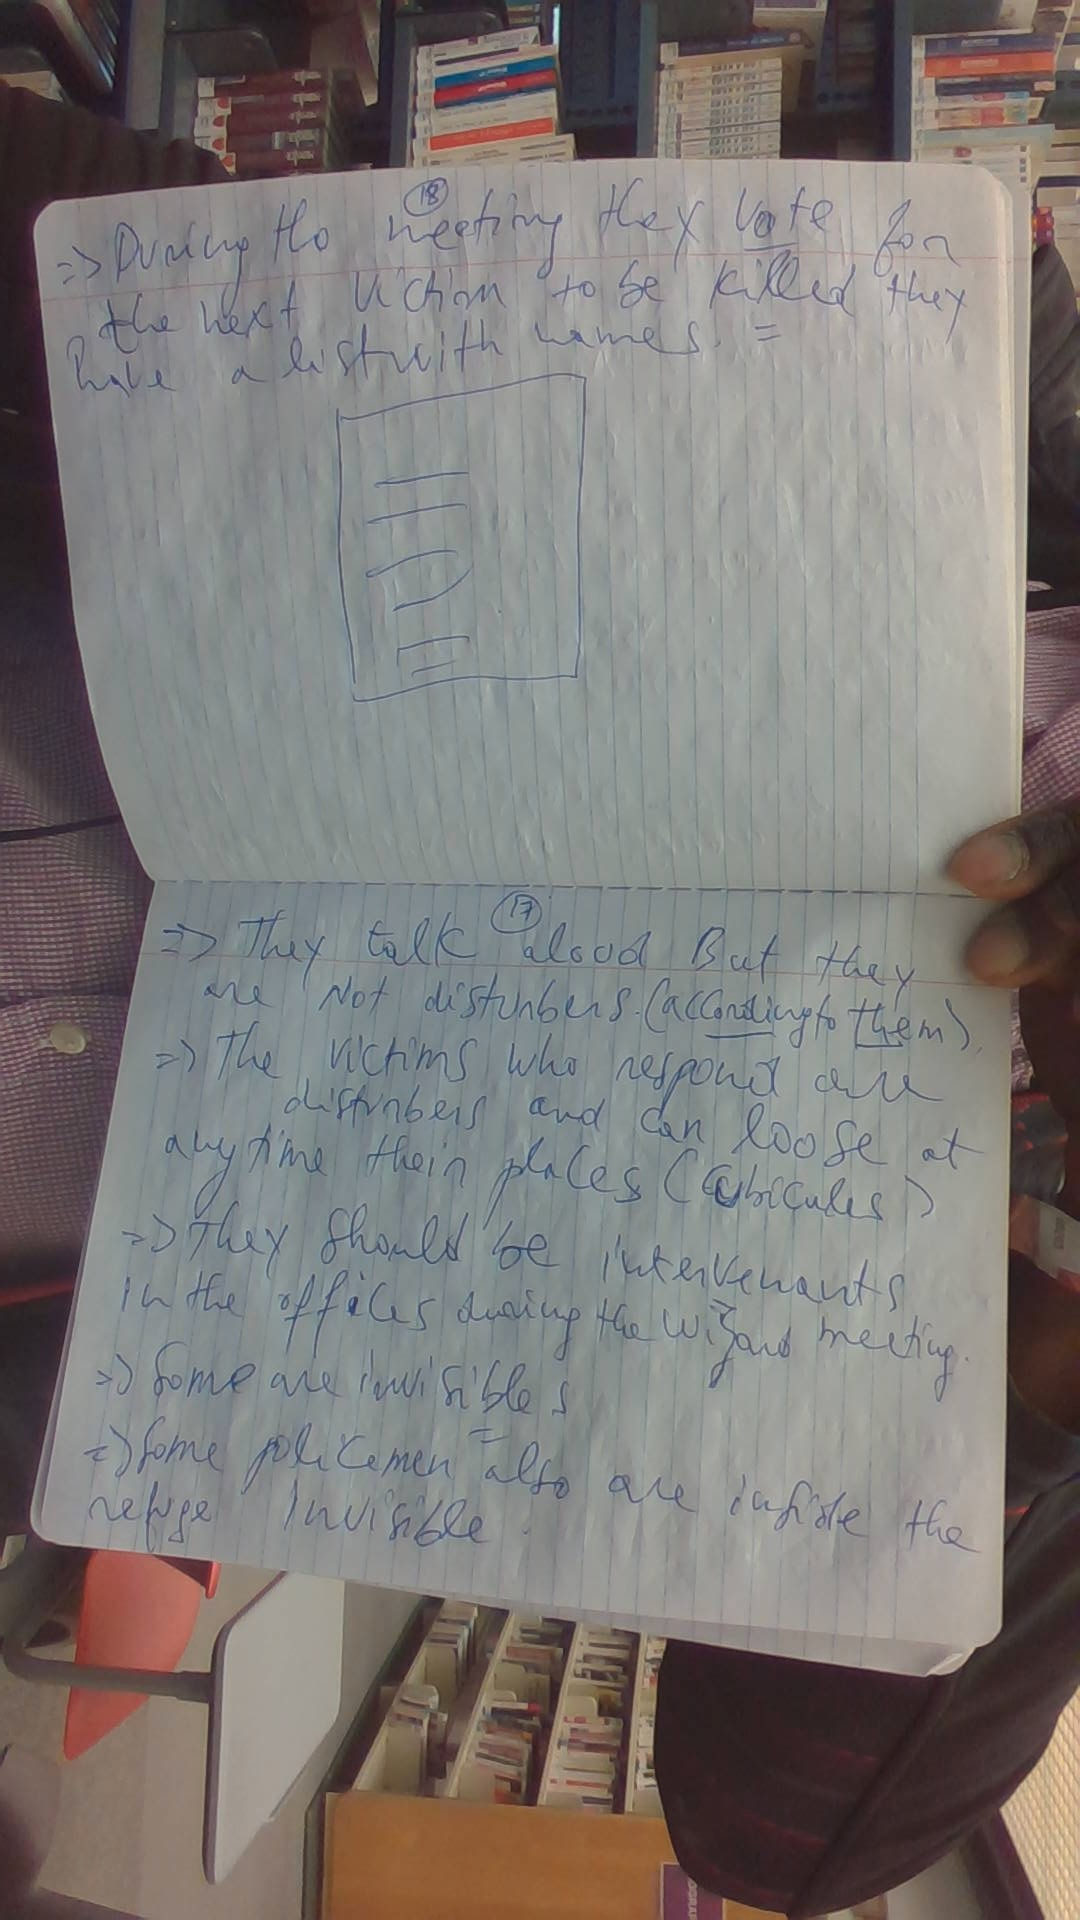 18
=> During the meeting they vote for
the next victim to be killed they
have a list with names. =
17
=> They talk aloud But they
are Not disturbers. (according to them).
=> The victims who respond are
disturbers and can loose at
any time their places (cubicules)
=> They should be intervenants
in the offices during the wizard meeting.
=> Some are invisibles
=> Some policemen also are inside the
refuge invisible.